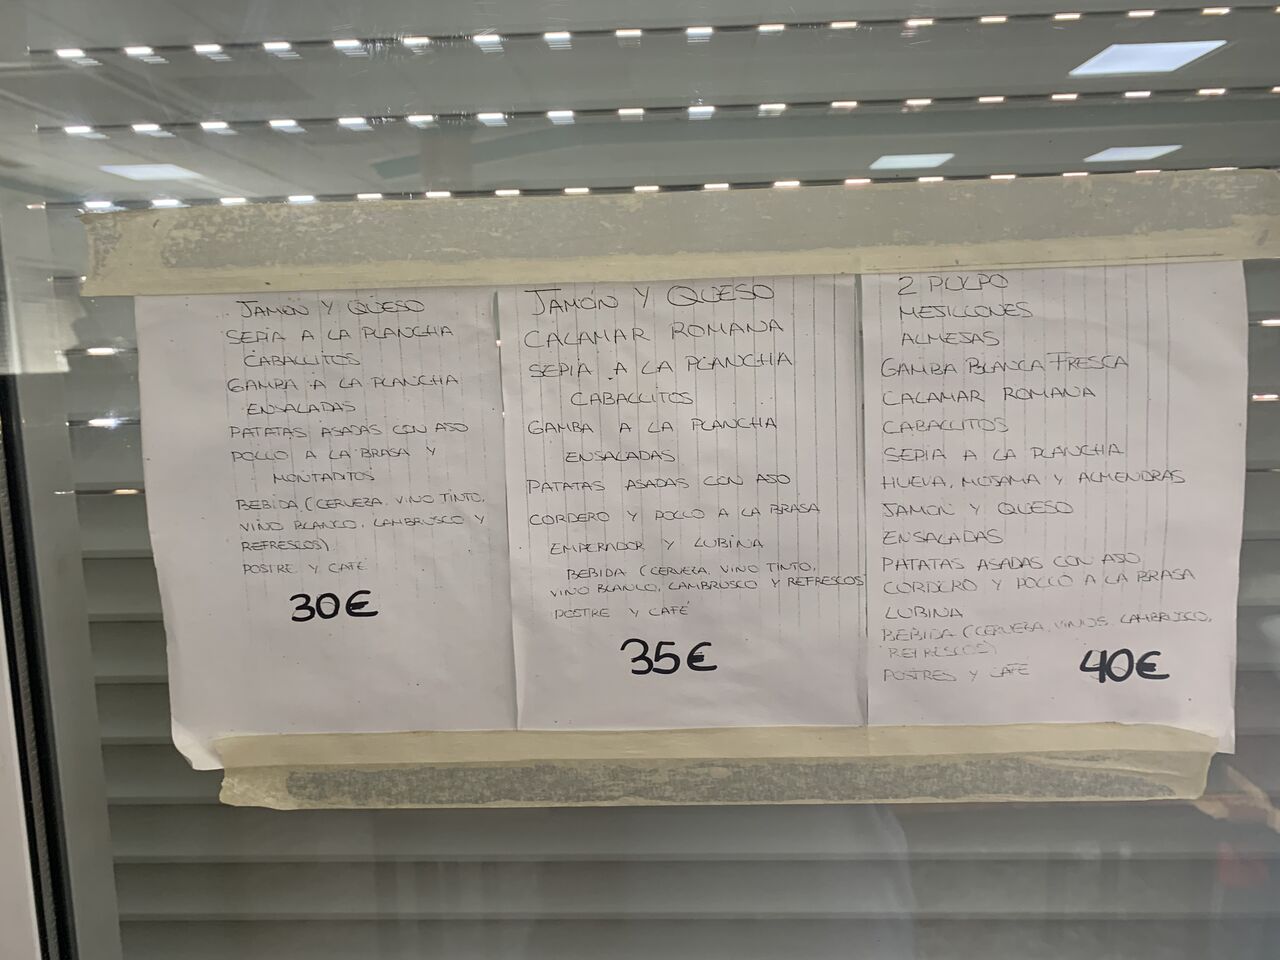 JAMON Y QUESO
SEPIA A LA PLANCHA
CABALLITOS
GAMBA A LA PLANCHA
ENSALADAS
PATATAS ASADAS CON AJO
POLLO A LA BRASA Y
MONTADITOS
BEBIDA (CERVEZA, VINO TINTO,
VINO BLANCO, LAMBRUSCO Y
REFRESCOS)
POSTRE Y CAFÉ
30€
JAMÓN Y QUESO
CALAMAR ROMANA
SEPIA A LA PLANCHA
CABALLITOS
GAMBA A LA PLANCHA
ENSALADAS
PATATAS ASADAS CON AJO
CORDERO Y POLLO A LA BRASA
EMPERADOR Y LUBINA
BEBIDA (CERVEZA, VINO TINTO,
VINO BLANCO, LAMBRUSCO Y REFRESCOS
POSTRE Y CAFÉ
35€
2 PULPO
MEJILLONES
ALMEJAS
GAMBA BLANCA FRESCA
CALAMAR ROMANA
CABALLITOS
SEPIA A LA PLANCHA
HUEVA, MOJAMA Y ALMENDRAS
JAMON Y QUESO
ENSALADAS
PATATAS ASADAS CON AJO
CORDERO Y POLLO A LA BRASA
LUBINA
BEBIDA (CERVEZA, VINOS, LAMBRUSCO,
REFRESCOS)
POSTRES Y CAFÉ
40€